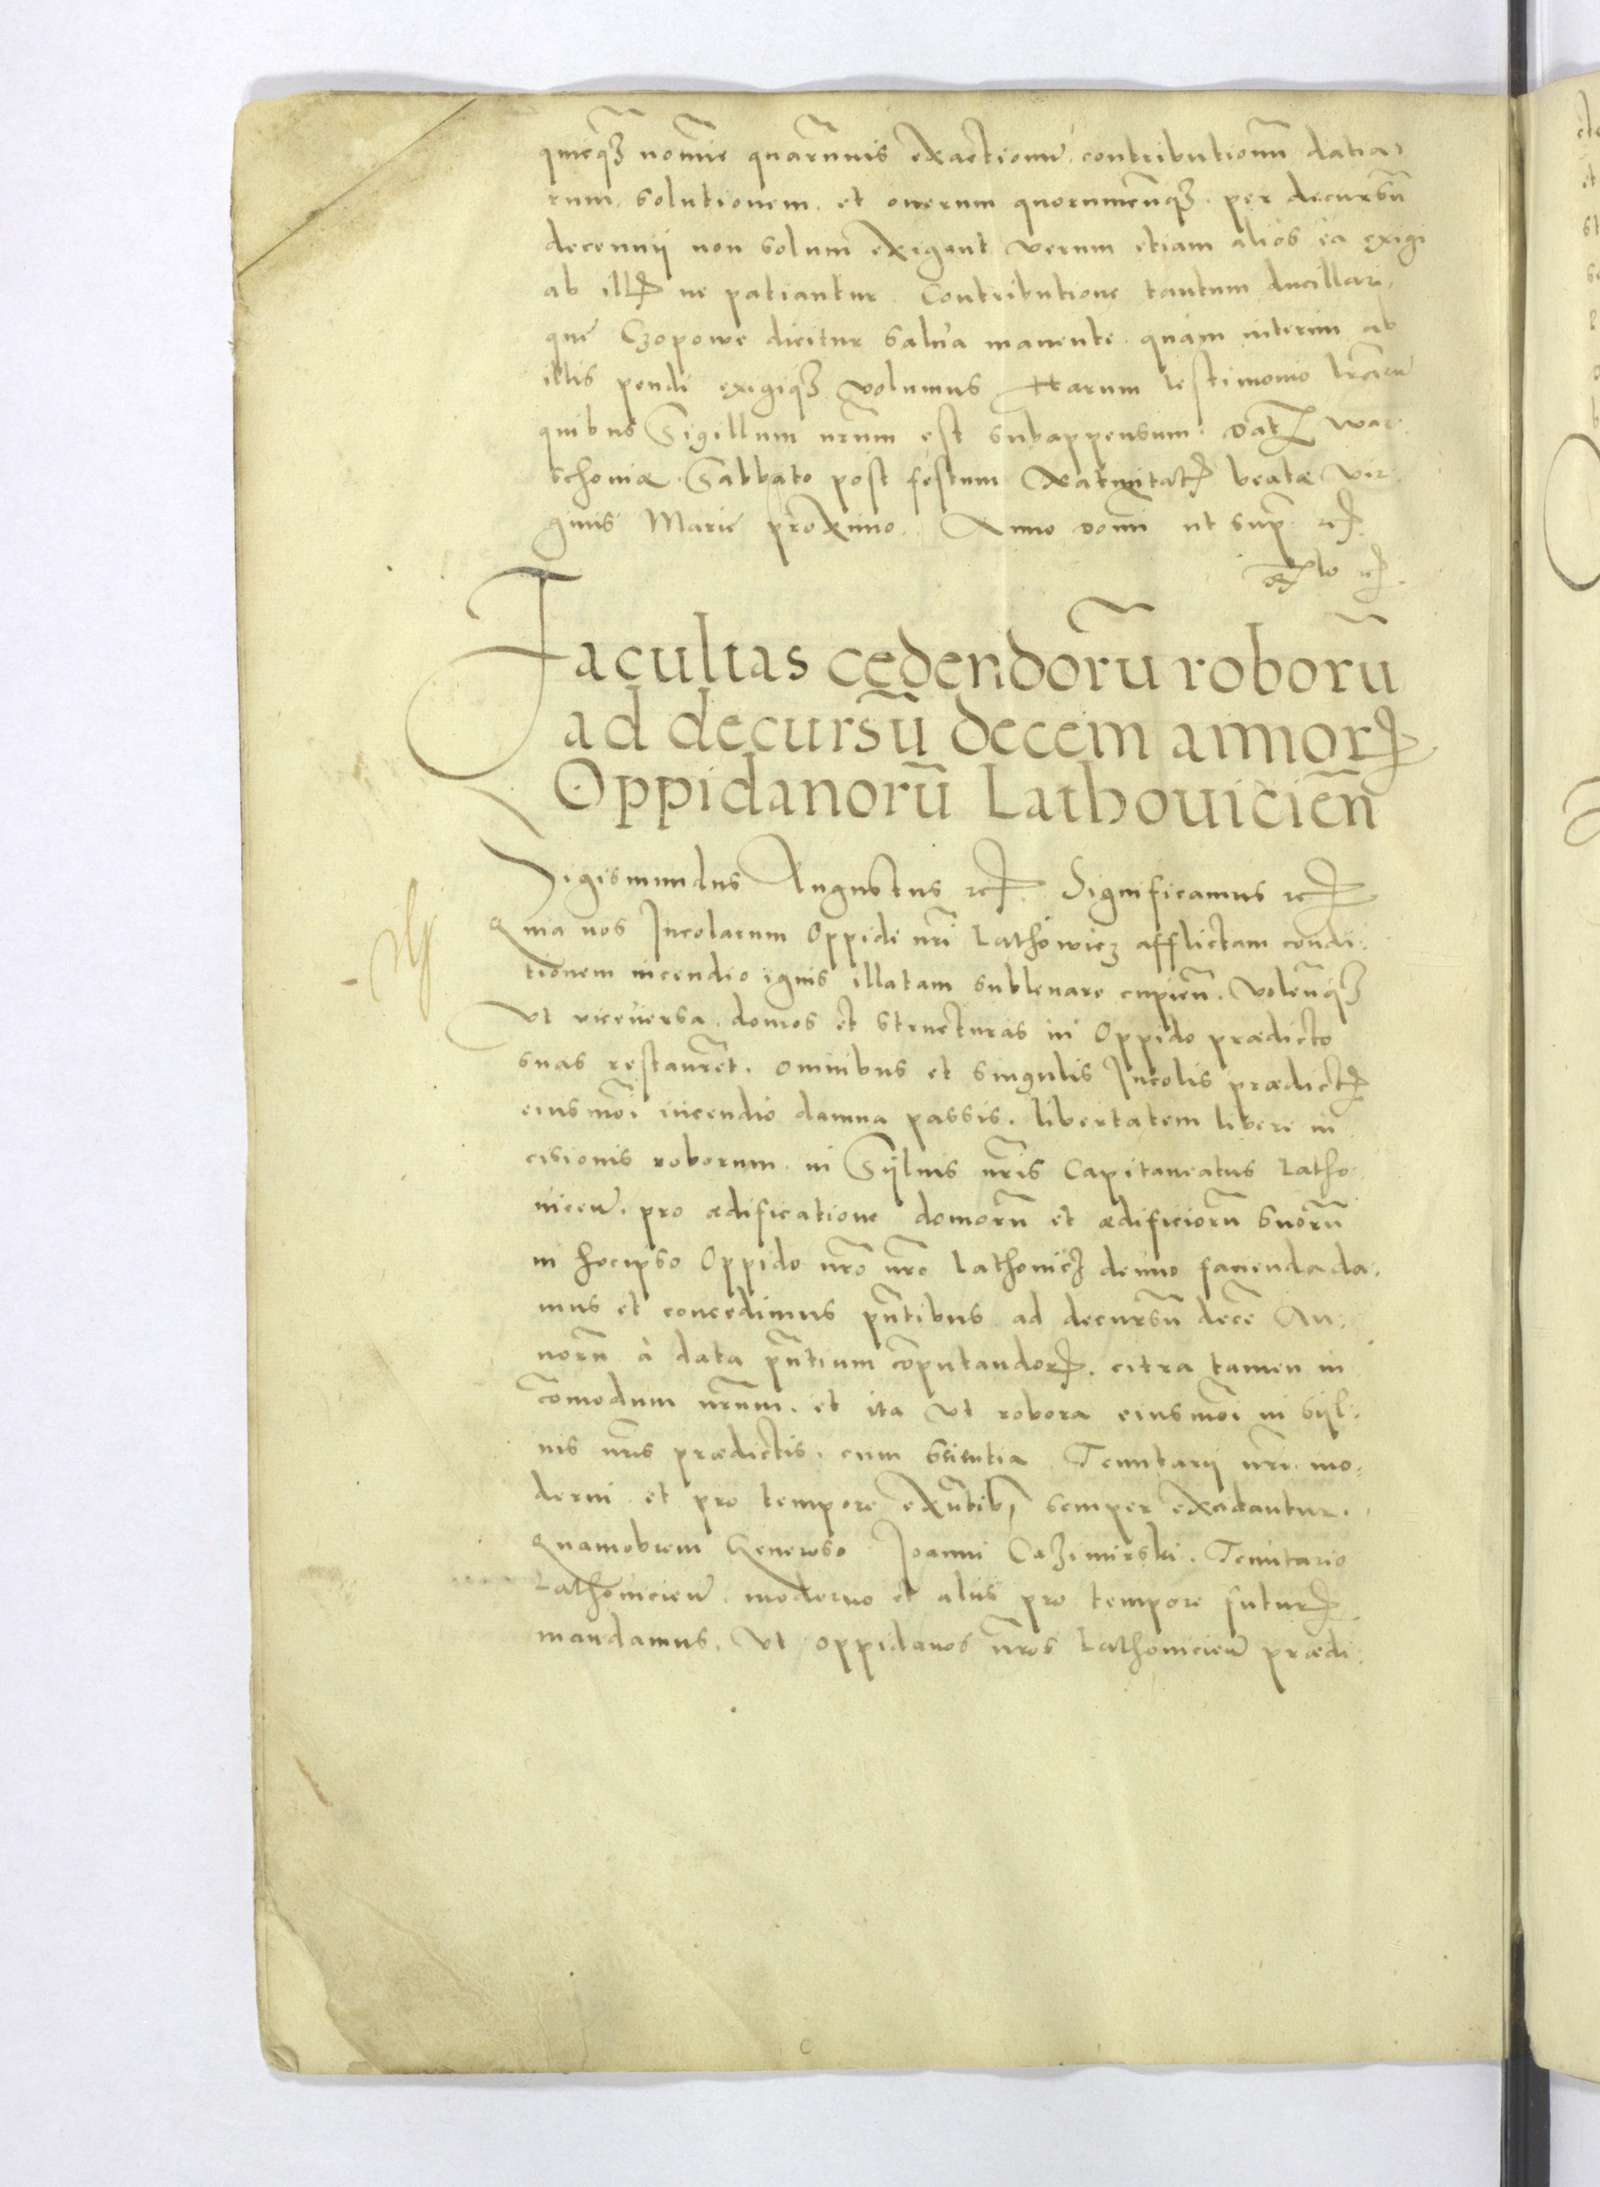 nomine quarumvis exactionum contributionum datia-
rum, solutionem, et onerum quorumcunqȝ, per decursū
decennij non solum exigant verum etiam alios ea exigi
ab illis ne patiantur. Contributione tantum ducillari,
que Czopowe dicitur salva manente, quam interim ab
illis pendi exigiqȝ volumus Harum testimonio lrarum
quibus Sigillum nrum est subappensum. Dat War-
schoviæ Sabbato post festum Nativitatis beatæ Vir-
ginis Marie proximo. Anno domi ut sup etc.
Facultas cędendorū roborū
ad decursū decem annor
Oppidanorū Lathouicień
Sigismundus Augustus etc. Significamus etc.
Quia nos Incolarum Oppidi nri Lathowicz afflictam condi-
tionem incendio ignis illatam sublevare cupien. volenqȝ
Ut viceversa, domos et structuras in Oppido prædicto
suas restaurēt, omnibus et singulis Incolis prædictis
eiusmoi incendio damna passis, libertatem libere in
cisionis roborum in Sijluis nris Capitaneatus Latho-
uicień. pro ædificatione domorū et ædificiorū suorū
in hocipso Oppido nro nro Lathouicz denuo facienda da-
mus et concedimus pntibus ad decursū decē An-
norū à data pntium cōputandor, citra tamen in
cōmodum nrum, et ita Ut robora eiusmoi in sijl-
uis nris prædictis, cum scientia Tenutarij nri mo-
derni et pro tempore exntibs semper excidantur.
Quamobrem Generoso Joanni Cazimirski, Tenutario
Lathouicień, moderno et alijs pro tempore futuris
mandamus, Ut oppidanos nros Lathouicień prædi-